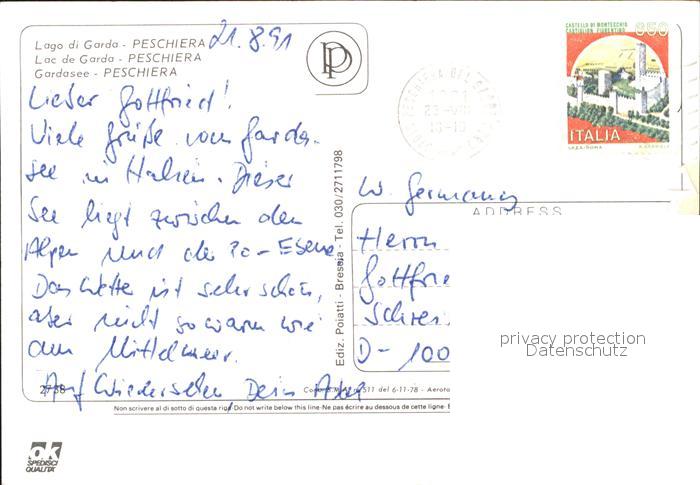 Lago di Garda - PESCHIERA
Lac de Garda - PESCHIERA
Gardasee - PESCHIERA
21.8.91
P
CASTELLO DI MONTECCHIO
CASTIGLION FIORENTINO
650
ITALIA
Lieber Gottfried!
Viele Grüße vom Garda-
see in Italien. Dieser
See liegt zwischen den
Alpen und der Po-Ebene
Das Wetter ist sehr schön,
aber nicht so warm wie
am Mittelmeer.
Auf Wiedersehen Dein
Ediz. Poiatti - Brescia - Tel. 030/2711798
W. Germany
ADDRESS
Herrn
Gottfrie
Schrei
D - 100
privacy protection
Datenschutz
511 del 6-11-78 - Aeroto
Non scrivere al di sotto di questa riga/Do not write below this line-Ne pas écrire au dessous de cette ligne-
ok
SPEDISCI
QUALITA'